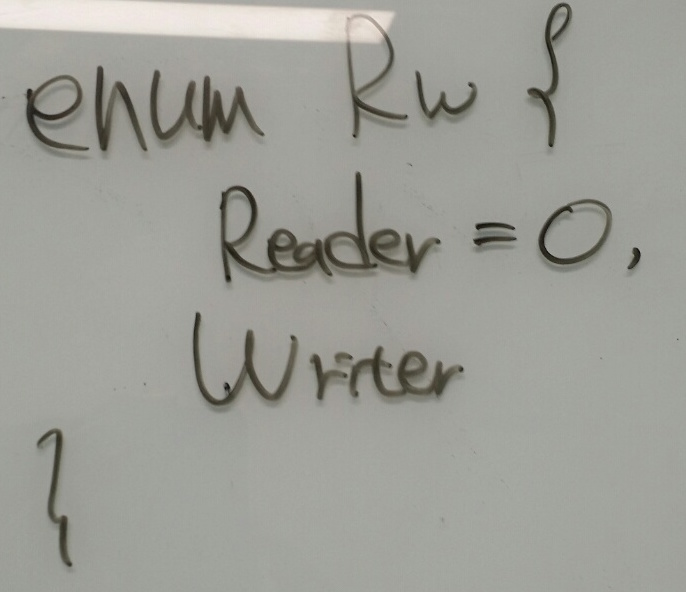 enum Rw {
Reader = 0,
Writer
}